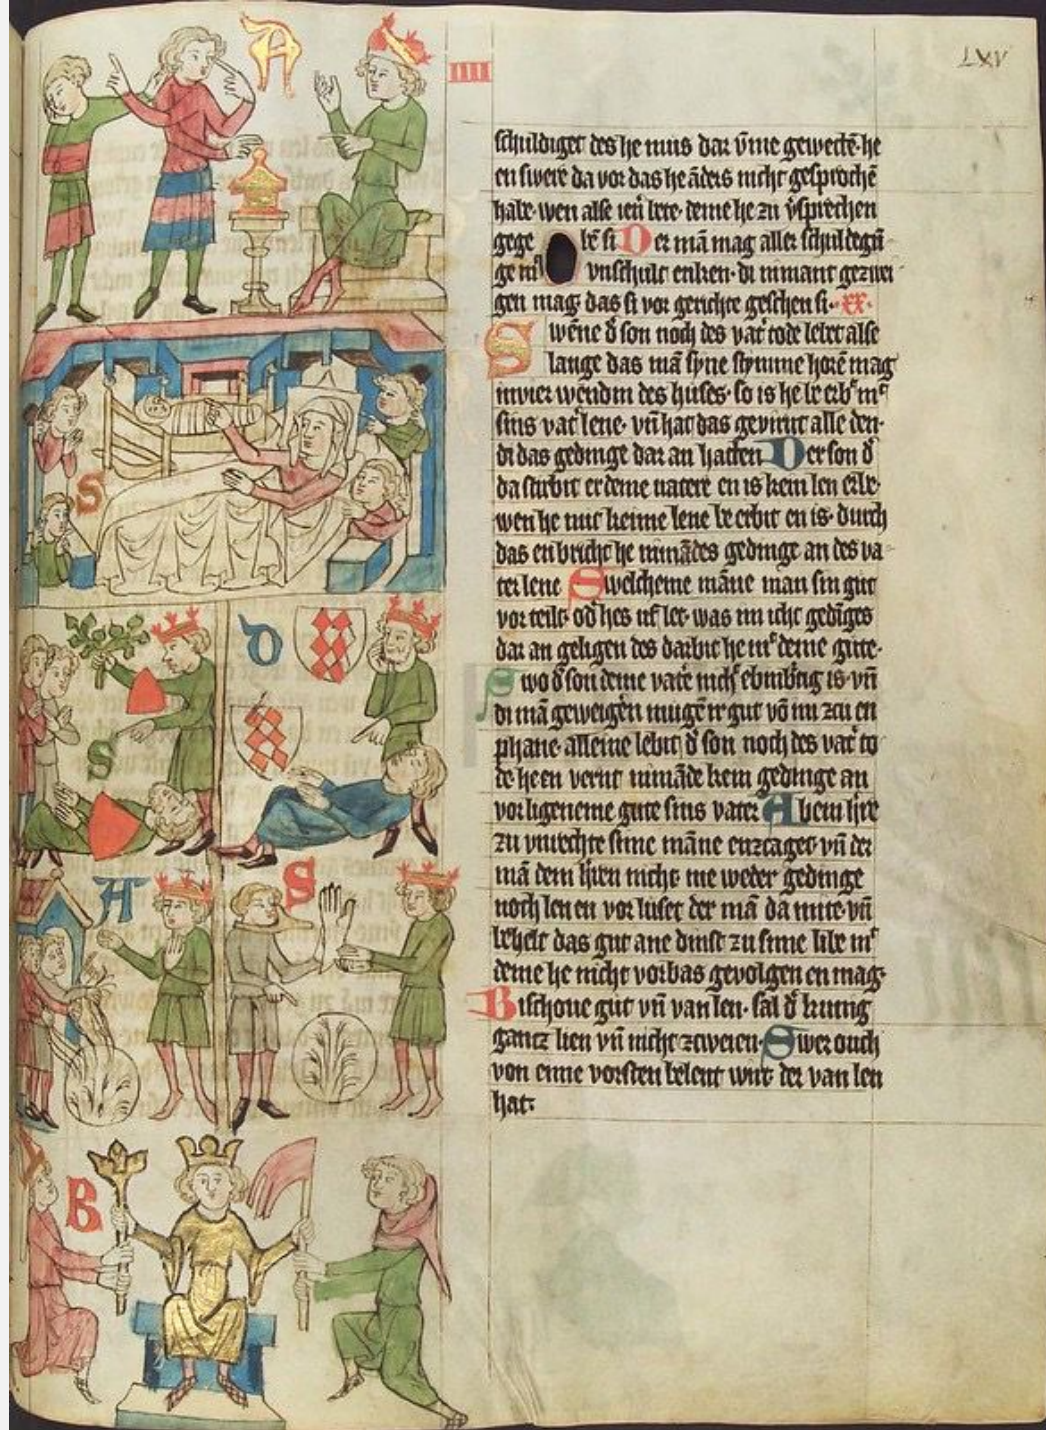 LXV
IIII
schuldiget des he mus dar v̄me gewetē· he
en swere da vor das he āders nicht gesprochē
habe· wen alse
gege lē si Der mā mag aller schuldegū
ge vnschult enken· di nimant gezwei
gen mag· das si vor gerichte geschen si· xx·
Swēne d̓ son noch des vat̓ tode lebet alse
lange das mā syne stymme horē mag
in vier wendin des huses· so is he be erb
sins vat̓ lene· vn̄ hat das gevirnt alle den·
di das gedinge dar an hatten Der son d̓
da stirbit er deme vatere en is kein len erbe·
wen he mit keime lene be erbit en is· durch
das en bricht he nimādes gedinge an des va
ter lene Swelcheme māne man sin gut
vor teilt· od̓ hes uf let· was im icht gedīges
dar an geligen des darbit he deme gute·
Swo d̓ son deme vat̓e nich ebinb̓tig is· vn̄
di mā geweig̓en mugē ir gut vō im zcu en
phane· alleine lebit d̓ son noch des vat̓ to
de he en vernt nimāde kein gedinge an
vorligeneme gute sins vater· Ab ein h̓re
zu vnrechte sime māne enzcaget vn̄ der
mā dem h̓ren nicht· me weder gedinge
noch len en vor luset der mā da mite· vn̄
behelt das gut ane dinst zu sime libe
deme he nicht vorbas gevolgen en mag·
Bischoue gut vn̄ van len· sal d̓ kunig
gantz lien vn̄ nicht zcweien· Swer ouch
von eime vorsten belent wirt der van len
hat·
A
S
S
D
A
S
B